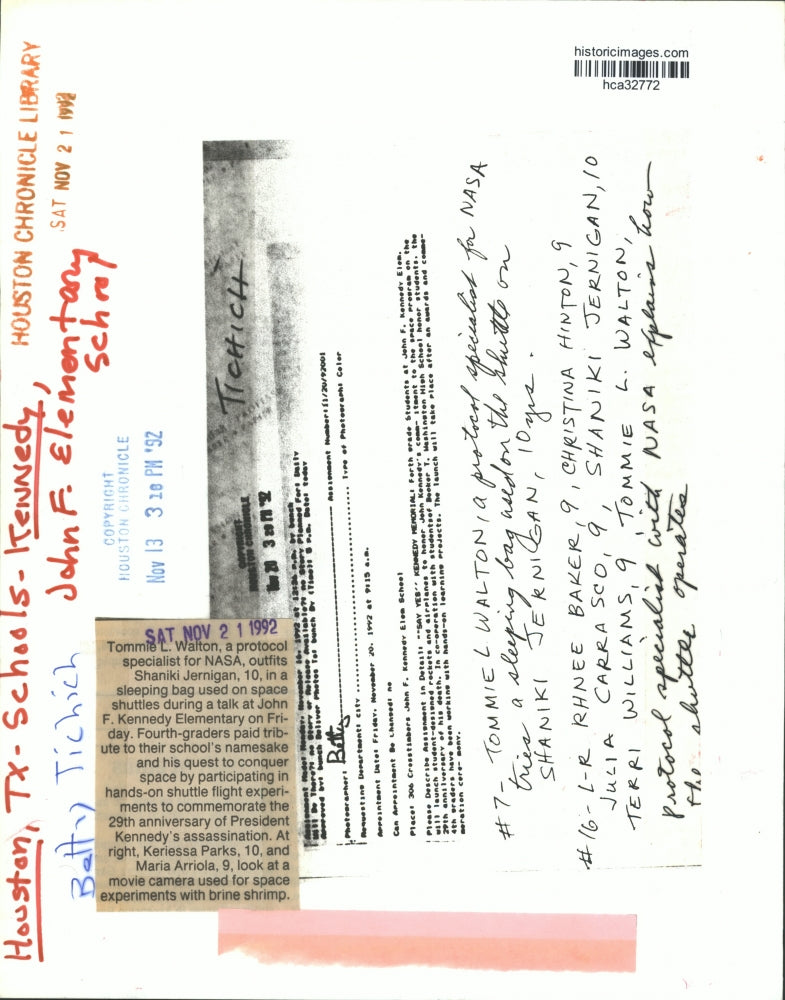 historicimages.com
hca32772
HOUSTON CHRONICLE LIBRARY
SAT NOV 2 1 1992
Houston, TX - Schools - Kennedy,
John F. Elementary
School
Betty Tichich
COPYRIGHT
HOUSTON CHRONICLE
Nov 13 3 10 PM '92
SAT NOV 2 1 1992
Tommie L. Walton, a protocol
specialist for NASA, outfits
Shaniki Jernigan, 10, in a
sleeping bag used on space
shuttles during a talk at John
F. Kennedy Elementary on Fri-
day. Fourth-graders paid trib-
ute to their school's namesake
and his quest to conquer
space by participating in
hands-on shuttle flight experi-
ments to commemorate the
29th anniversary of President
Kennedy's assassination. At
right, Keriessa Parks, 10, and
Maria Arriola, 9, look at a
movie camera used for space
experiments with brine shrimp.
TICHICH
HOUSTON CHRONICLE
Nov 3 PM '92
Assignment Number:11/20/92001
Photographer: Betty
Type of Photograph: Color
Requesting Department: city
Appointment Date: Friday, November 20, 1992 at 9:15 a.m.
Can Appointment Be Changed: no
Place: 306 Crosstimbers John F. Kennedy Elem School
Please Describe Assignment in Detail: **SAY YES** KENNEDY MEMORIAL: Forth grade Students at John F. Kennedy Elem.
will launch student-designed rockets and airplanes to honor John Kennedy's comm- itment to the space program on the
29th anniversary of his death. In co-operation with students of Booker T. Washington High School honor students, the
4th graders have been working with hands-on learning projects. The launch will take place after an awards and comme-
moration cere- mony.
#7 - TOMMIE L WALTON, a protocol specialist for NASA
tries a sleeping bag used on the shuttle on
SHANIKI JERNIGAN, 10 yrs.
#16 - L-R RHNEE BAKER, 9, CHRISTINA HINTON, 9
JULIA CARRASCO, 9, SHANIKI JERNIGAN, 10
TERRI WILLIAMS, 9 TOMMIE L. WALTON,
Protocol specialist with NASA explains how
the shuttle operates